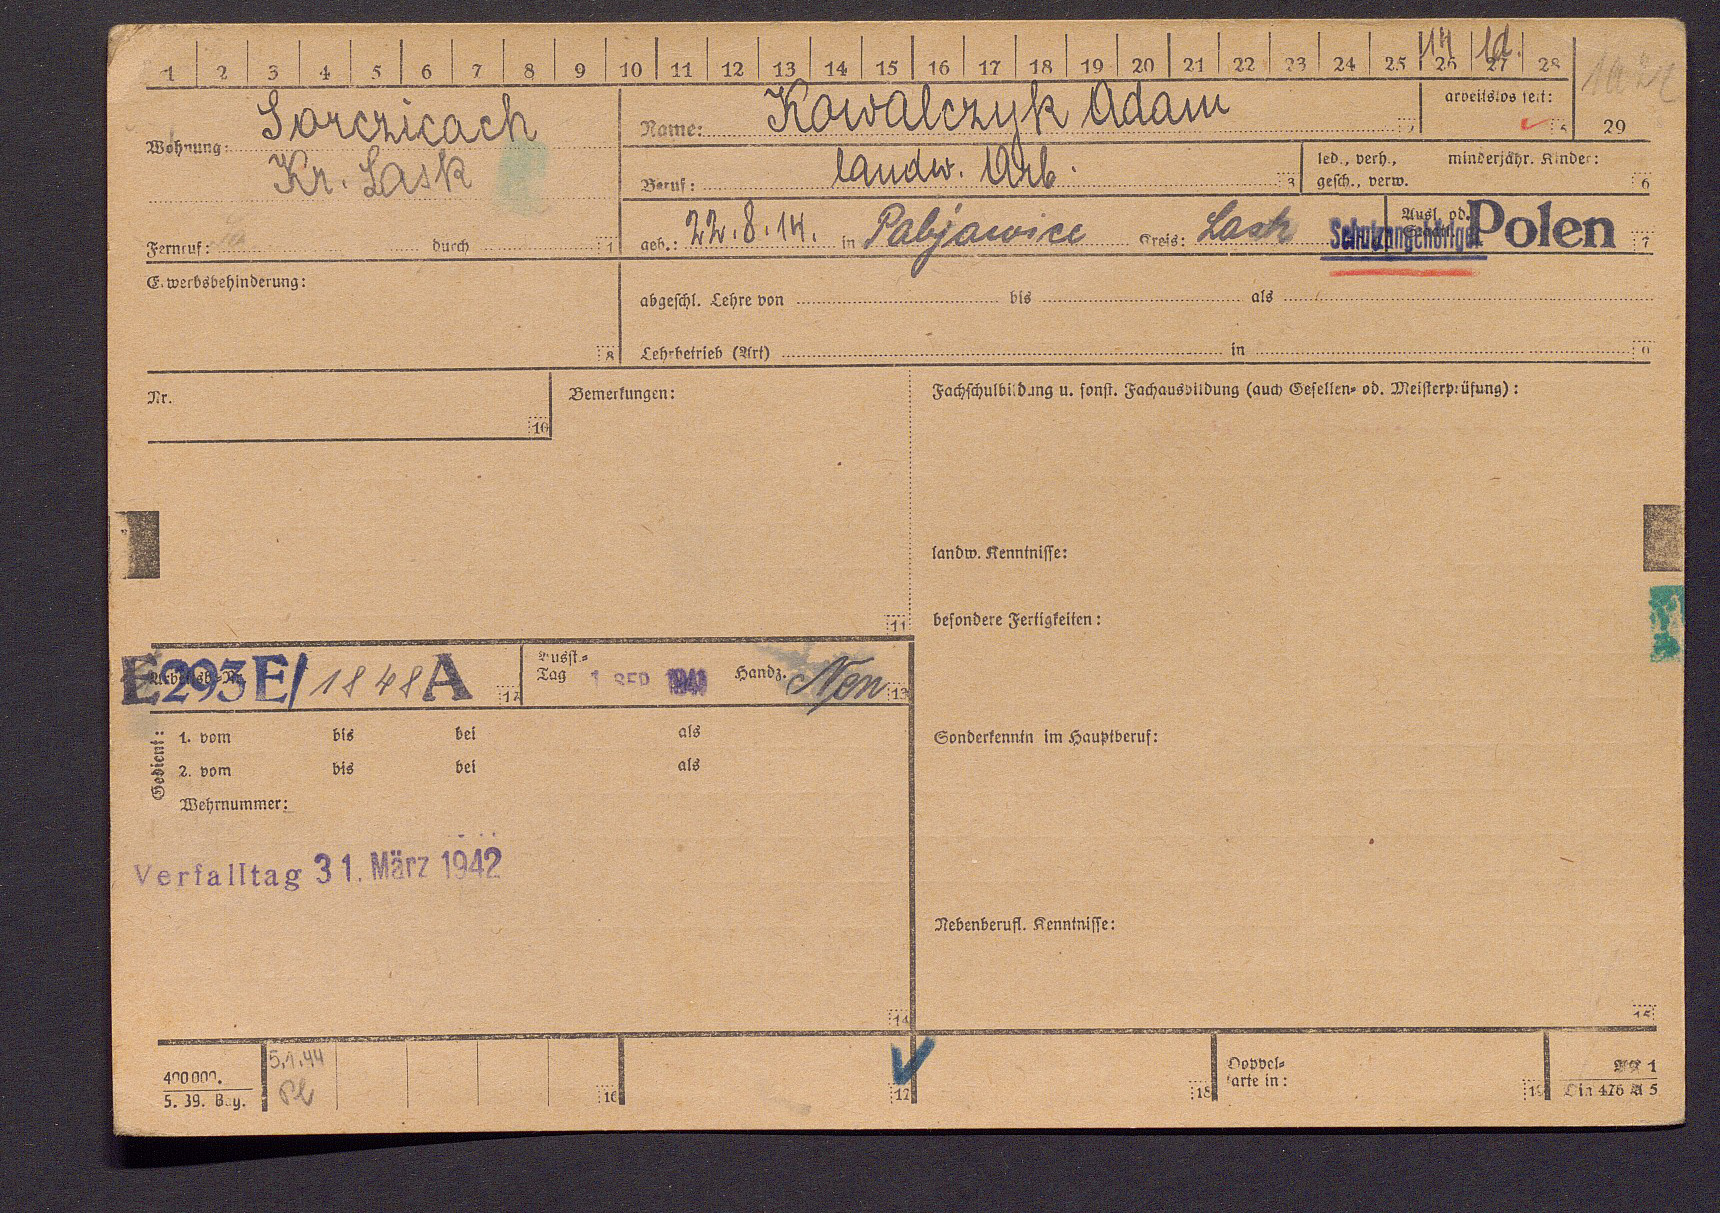 1 2 3 4 5 6 7 8 9 10 11 12 13 14 15 16 17 18 19 20 21 22 23 24 25 26 27 28
Wohnung: Sorczicach
Kr. Lask
Fernruf: durch 1
Name: Kowalczyk Adam
arbeitslos seit: 5
29
Beruf: landw. Arb. 3
led., verh., minderjähr. Kinder:
gesch., verw. 6
geb.: 22.8.14. in Pabjawice Kreis: Lask
Ausl. od.
Schutzangehöriger Polen 7
Erwerbsbehinderung: 8
abgeschl. Lehre von bis als
Lehrbetrieb (Art) in 9
Nr. 10
Bemerkungen: 11
Fachschulbildung u. sonst. Fachausbildung (auch Gesellen- od. Meisterprüfung):
landw. Kenntnisse:
besondere Fertigkeiten:
Sonderkenntn im Hauptberuf:
Nebenberufl. Kenntnisse: 15
Arbeitsb.-Nr. E293E/1848A 12
Ausst.-
Tag 1 SEP 1941 Handz. 13
Gedient:
1. vom bis bei als
2. vom bis bei als
Wehrnummer:
Verfalltag 31. März 1942
14
400000.
5. 39. Bay.
5.1.44
16
17
18
Doppel-
karte in: 19
AA 1
Din 476 A 5